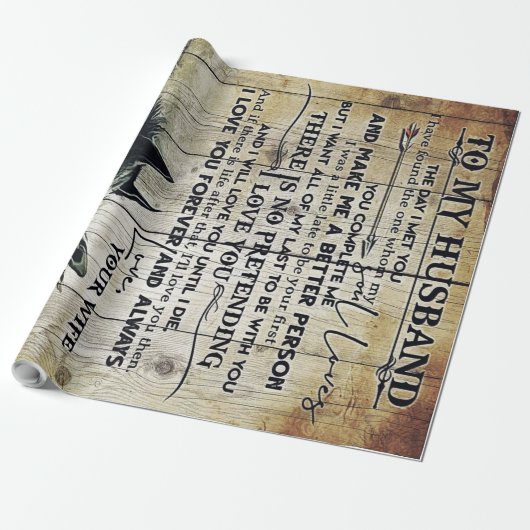 TO MY HUSBAND
THE DAY I MET YOU
I have found the one whom my
soul loves
YOU COMPLETE ME
AND MAKE ME A BETTER PERSON
I was a little late to be your first
BUT I WANT ALL OF MY LAST TO BE WITH YOU
THERE IS NO PRETENDING
I LOVE YOU
AND I WILL LOVE YOU UNTIL I DIE
And if there is life after that, I'll love you then.
I LOVE YOU FOREVER AND ALWAYS
Love,
YOUR WIFE